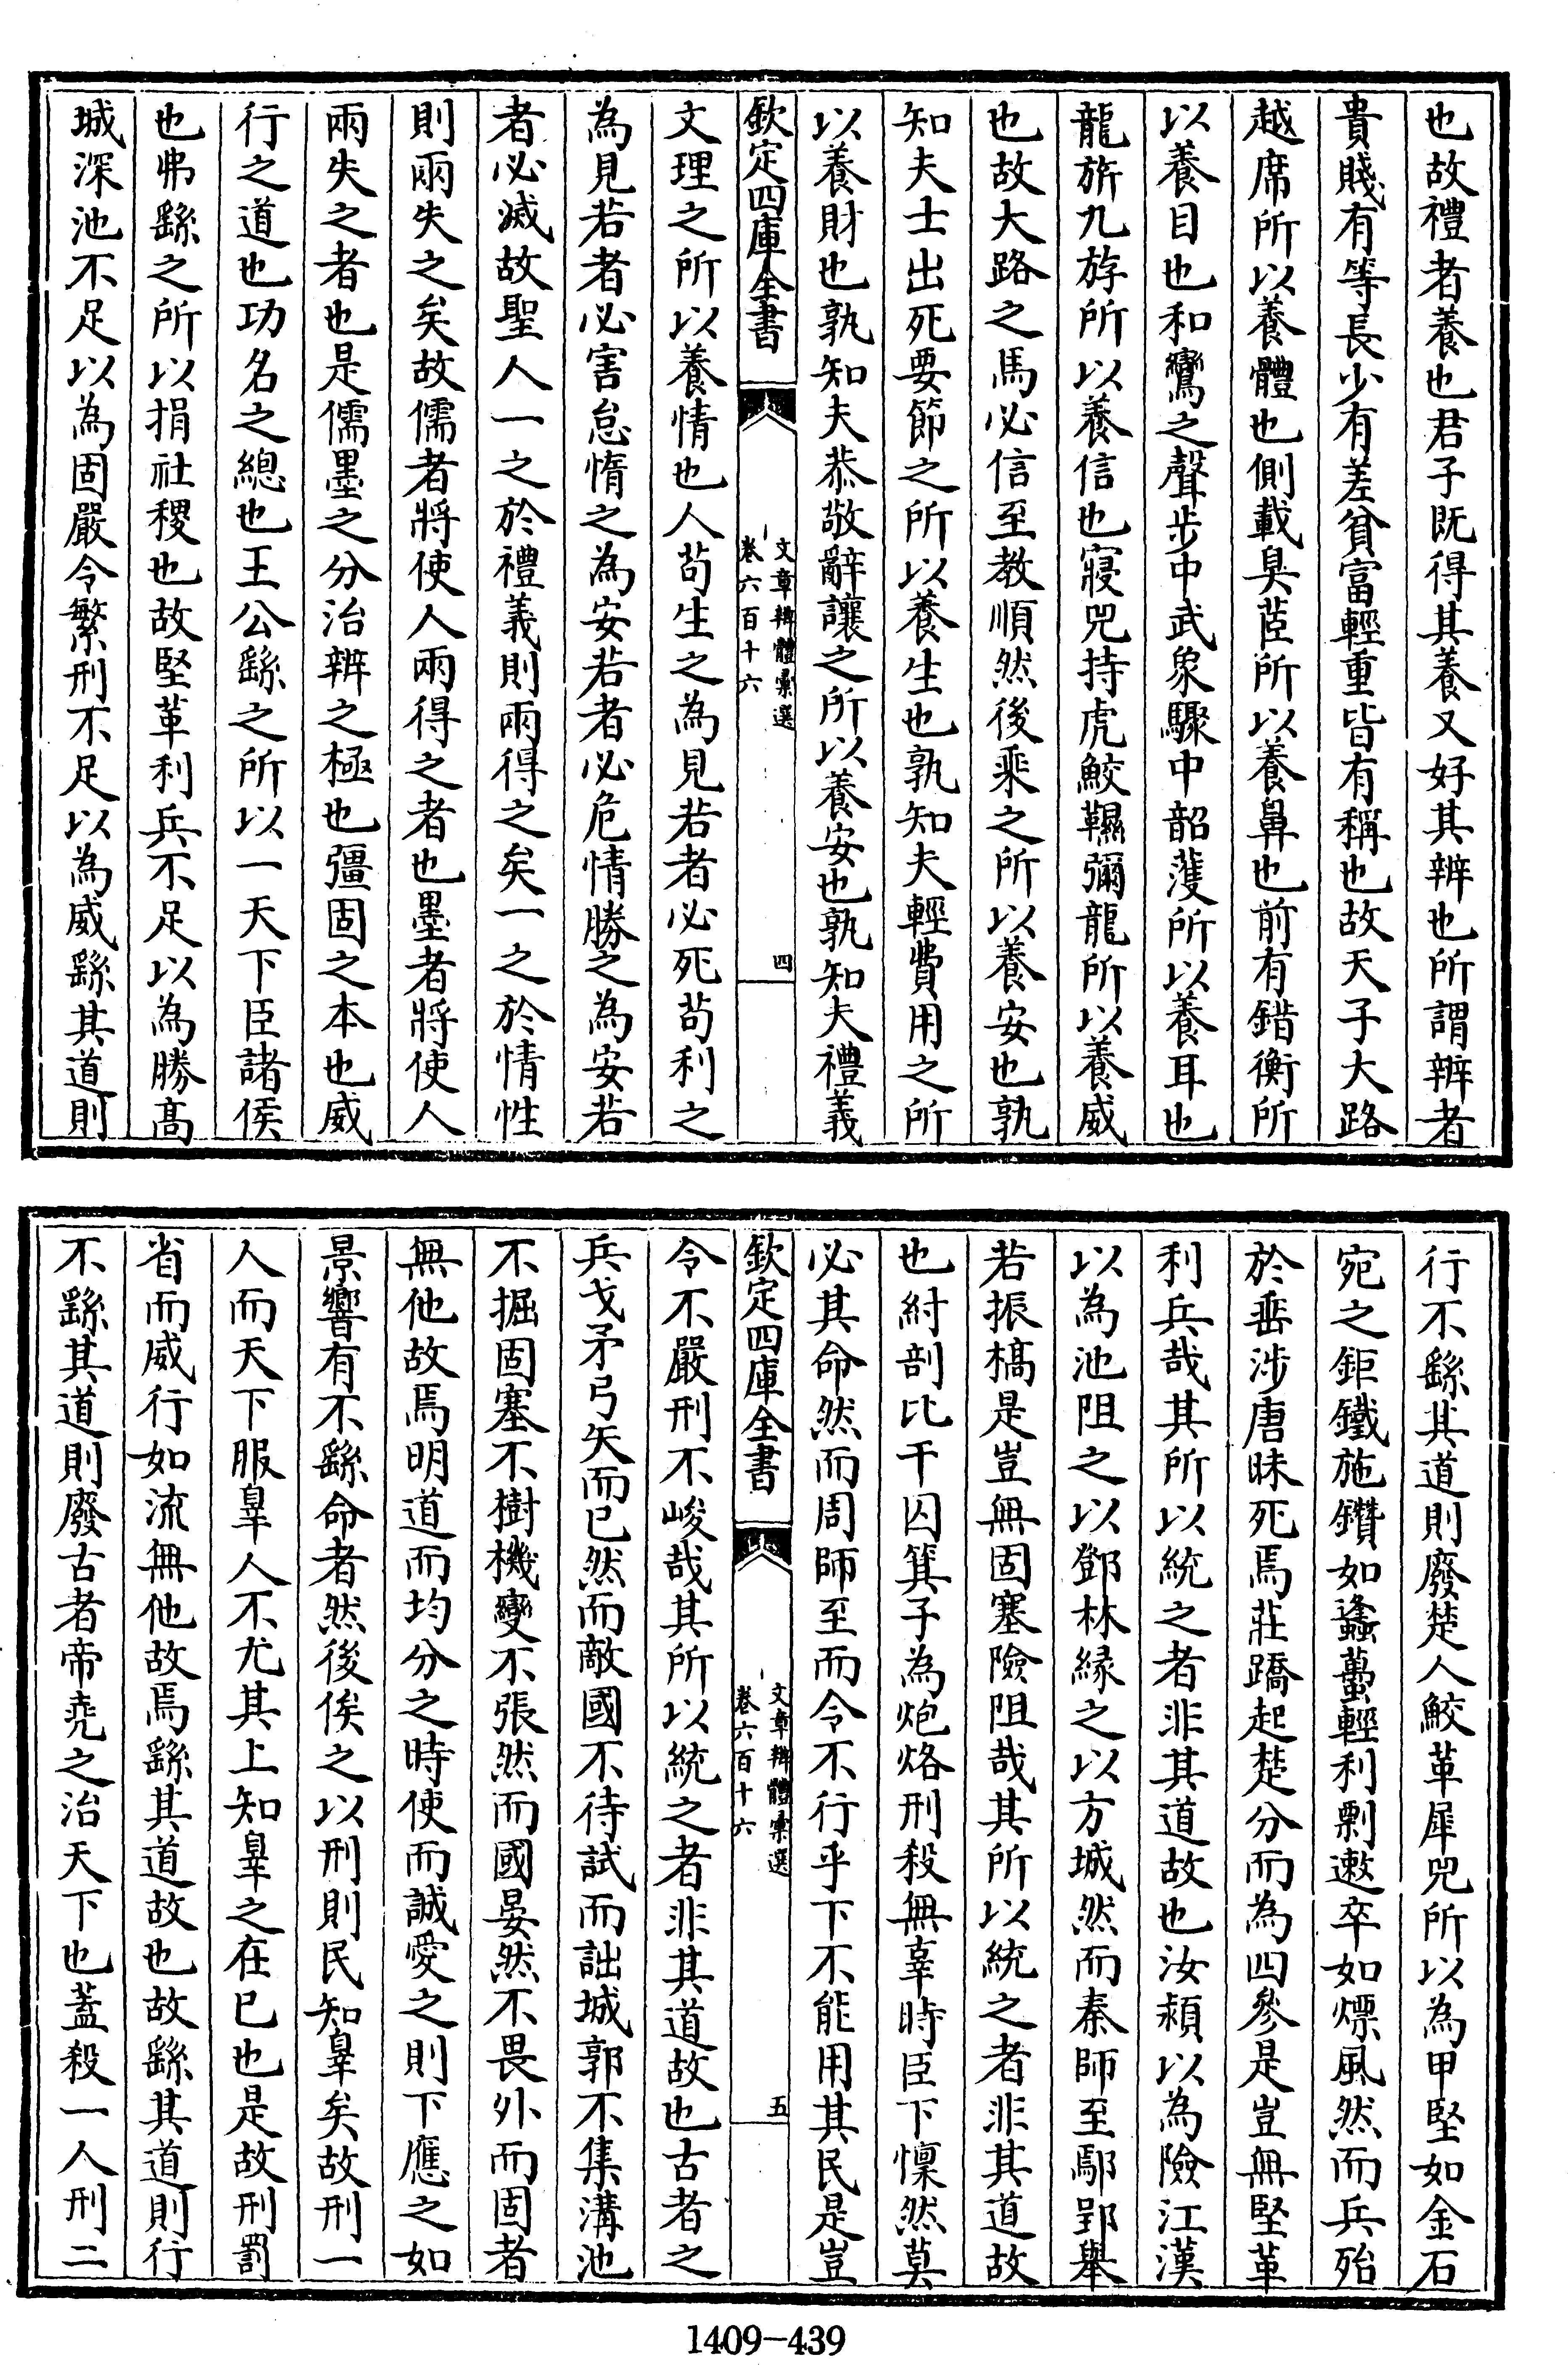 也故禮者養也君子既得其養又好其辨也所謂辨者
貴賤有等長少有差貧富輕重皆有稱也故天子大路
越席所以養體也側載臭茝所以養鼻也前有錯衡所
以養目也和鸞之聲步中武象驟中韶濩所以養耳也
龍旂九斿所以養信也寢兕持虎鮫韅彌龍所以養威
也故大路之馬必信至教順然後乘之所以養安也孰
知夫士出死要節之所以養生也孰知夫輕費用之所
以養財也孰知夫恭敬辭讓之所以養安也孰知夫禮義
欽定四庫全書
文章辨體彙選
卷六百十六
四
文理之所以養情也人苟生之為見若者必死苟利之
為見若者必害怠惰之為安若者必危情勝之為安若
者必滅故聖人一之於禮義則兩得之矣一之於情性
則兩失之矣故儒者將使人兩得之者也墨者將使人
兩失之者也是儒墨之分治辨之極也彊固之本也威
行之道也功名之總也王公繇之所以一天下臣諸侯
也弗繇之所以捐社稷也故堅革利兵不足以為勝高
城深池不足以為固嚴令繁刑不足以為威繇其道則
行不繇其道則廢楚人鮫革犀兕所以為甲堅如金石
宛之鉅鐵施鑽如蠭蠆輕利剽遬卒如熛風然而兵殆
於垂涉唐昧死焉莊蹻起楚分而為四參是豈無堅革
利兵哉其所以統之者非其道故也汝潁以為險江漢
以為池阻之以鄧林緣之以方城然而秦師至鄢郢舉
若振槁是豈無固塞險阻哉其所以統之者非其道故
也紂剖比干囚箕子為炮烙刑殺無辜時臣下懍然莫
必其命然而周師至而令不行乎下不能用其民是豈
欽定四庫全書
文章辨體彙選
卷六百十六
五
令不嚴刑不峻哉其所以統之者非其道故也古者之
兵戈矛弓矢而已然而敵國不待試而詘城郭不集溝池
不掘固塞不樹機變不張然而國晏然不畏外而固者
無他故焉明道而均分之時使而誠愛之則下應之如
景響有不繇命者然後俟之以刑則民知辠矣故刑一
人而天下服辠人不尤其上知辠之在已也是故刑罰
省而威行如流無他故焉繇其道故也故繇其道則行
不繇其道則廢古者帝堯之治天下也蓋殺一人刑二
1409-439